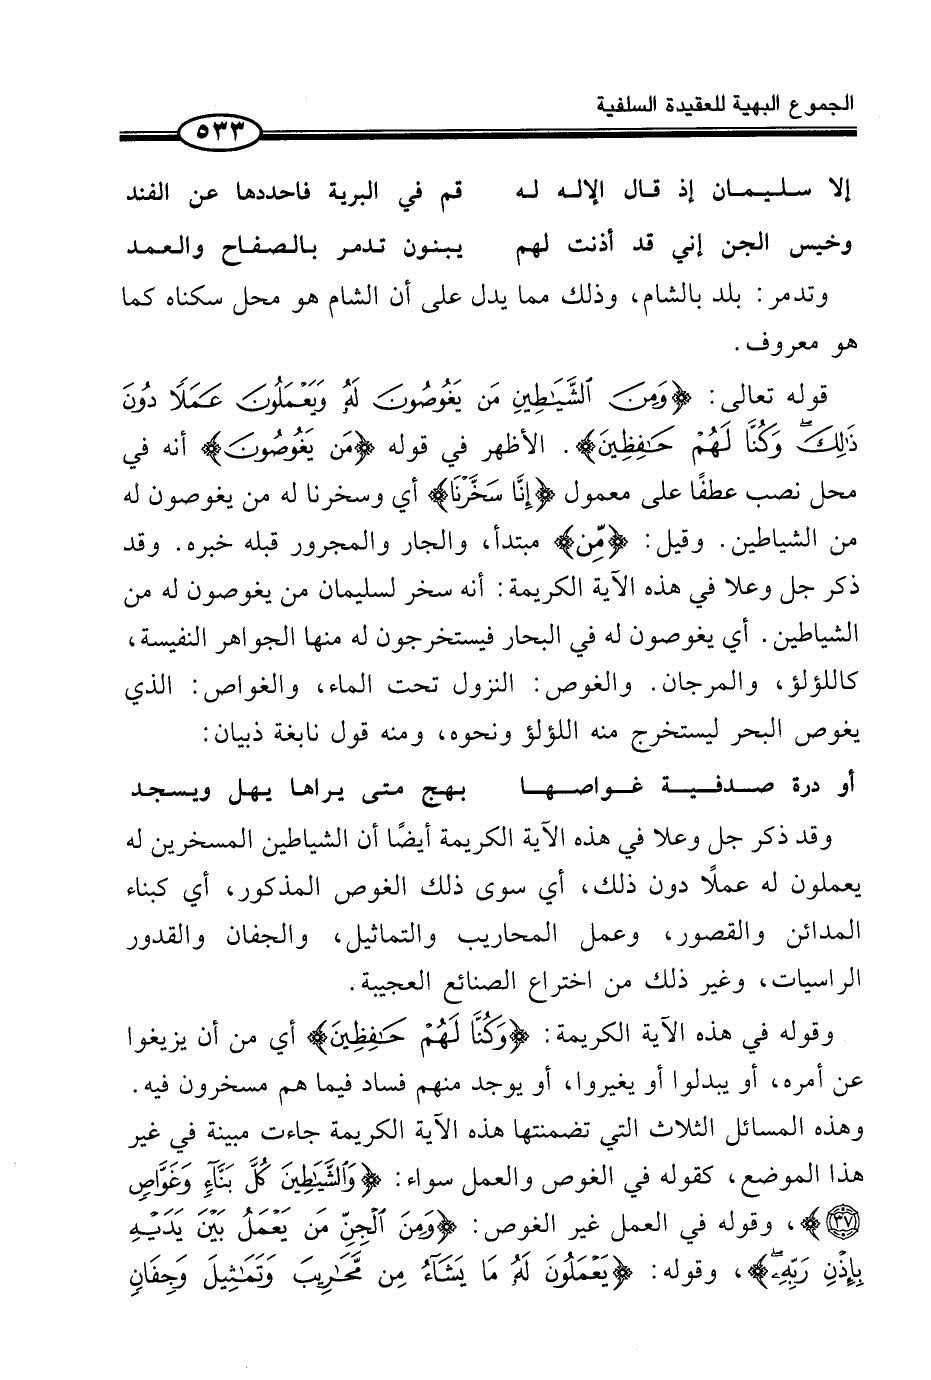 الجموع البهية للعقيدة السلفية
٥٣٣
إلا سليمان إذ قال الإله له قم في البرية فاحددها عن الفند
وخيس الجن إني قد أذنت لهم يبنون تدمر بالصفاح والعمد
وتدمر: بلد بالشام، وذلك مما يدل على أن الشام هو محل سكناه كما
هو معروف.
قوله تعالى: ﴿وَمِنَ ٱلشَّيَٰطِينِ مَن يَغُوصُونَ لَهُۥ وَيَعْمَلُونَ عَمَلًا دُونَ
ذَٰلِكَ ۖ وَكُنَّا لَهُمْ حَٰفِظِينَ﴾. الأظهر في قوله ﴿مَن يَغُوصُونَ﴾ أنه في
محل نصب عطفًا على معمول ﴿إِنَّا سَخَّرْنَا﴾ أي وسخرنا له من يغوصون له
من الشياطين. وقيل: ﴿مِّن﴾ مبتدأ، والجار والمجرور قبله خبره. وقد
ذكر جل وعلا في هذه الآية الكريمة: أنه سخر لسليمان من يغوصون له من
الشياطين. أي يغوصون له في البحار فيستخرجون له منها الجواهر النفيسة،
كاللؤلؤ، والمرجان. والغوص: النزول تحت الماء، والغواص: الذي
يغوص البحر ليستخرج منه اللؤلؤ ونحوه، ومنه قول نابغة ذبيان:
أو درة صدفية غواصها بهج متى يراها يهل ويسجد
وقد ذكر جل وعلا في هذه الآية الكريمة أيضًا أن الشياطين المسخرين له
يعملون له عملًا دون ذلك، أي سوى ذلك الغوص المذكور، أي كبناء
المدائن والقصور، وعمل المحاريب والتماثيل، والجفان والقدور
الراسيات، وغير ذلك من اختراع الصنائع العجيبة.
وقوله في هذه الآية الكريمة: ﴿وَكُنَّا لَهُمْ حَٰفِظِينَ﴾ أي من أن يزيغوا
عن أمره، أو يبدلوا أو يغيروا، أو يوجد منهم فساد فيما هم مسخرون فيه.
وهذه المسائل الثلاث التي تضمنتها هذه الآية الكريمة جاءت مبينة في غير
هذا الموضع، كقوله في الغوص والعمل سواء: ﴿وَٱلشَّيَٰطِينَ كُلَّ بَنَّآءٍ وَغَوَّاصٍ
٣٧﴾، وقوله في العمل غير الغوص: ﴿وَمِنَ ٱلْجِنِّ مَن يَعْمَلُ بَيْنَ يَدَيْهِ
بِإِذْنِ رَبِّهِۦ ۖ﴾، وقوله: ﴿يَعْمَلُونَ لَهُۥ مَا يَشَآءُ مِن مَّحَٰرِيبَ وَتَمَٰثِيلَ وَجِفَانٍ